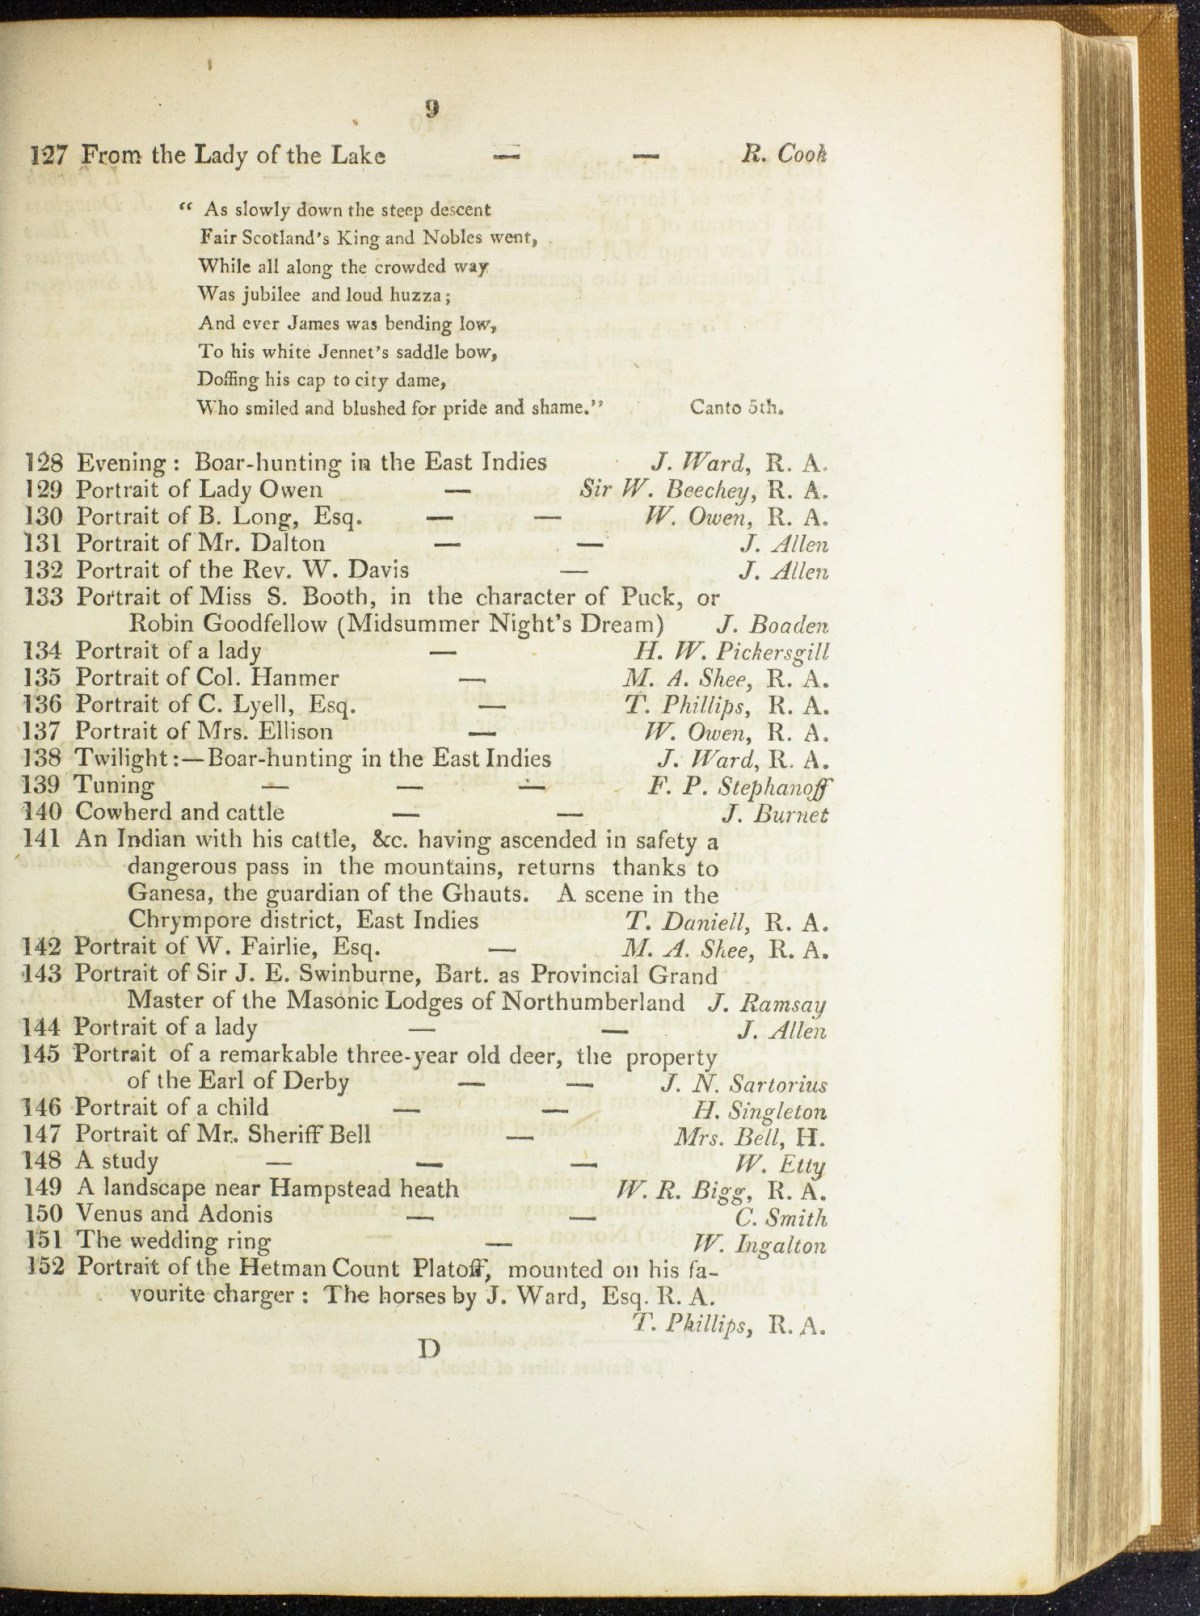 9
127 From the Lady of the Lake — — R. Cook
“ As slowly down the steep descent
Fair Scotland's King and Nobles went,
While all along the crowded way
Was jubilee and loud huzza;
And ever James was bending low,
To his white Jennet's saddle bow,
Doffing his cap to city dame,
Who smiled and blushed for pride and shame.” Canto 5th.
128 Evening: Boar-hunting in the East Indies J. Ward, R. A.
129 Portrait of Lady Owen — Sir W. Beechey, R. A.
130 Portrait of B. Long, Esq. — — W. Owen, R. A.
131 Portrait of Mr. Dalton — — J. Allen
132 Portrait of the Rev. W. Davis — J. Allen
133 Portrait of Miss S. Booth, in the character of Puck, or
Robin Goodfellow (Midsummer Night's Dream) J. Boaden
134 Portrait of a lady — H. W. Pickersgill
135 Portrait of Col. Hanmer — M. A. Shee, R. A.
136 Portrait of C. Lyell, Esq. — T. Phillips, R. A.
137 Portrait of Mrs. Ellison — W. Owen, R. A.
138 Twilight:—Boar-hunting in the East Indies J. Ward, R. A.
139 Tuning — — — F. P. Stephanoff
140 Cowherd and cattle — — J. Burnet
141 An Indian with his cattle, &c. having ascended in safety a
dangerous pass in the mountains, returns thanks to
Ganesa, the guardian of the Ghauts. A scene in the
Chrympore district, East Indies T. Daniell, R. A.
142 Portrait of W. Fairlie, Esq. — M. A. Shee, R. A.
143 Portrait of Sir J. E. Swinburne, Bart. as Provincial Grand
Master of the Masonic Lodges of Northumberland J. Ramsay
144 Portrait of a lady — — J. Allen
145 Portrait of a remarkable three-year old deer, the property
of the Earl of Derby — — J. N. Sartorius
146 Portrait of a child — — H. Singleton
147 Portrait of Mr. Sheriff Bell — Mrs. Bell, H.
148 A study — — — W. Etty
149 A landscape near Hampstead heath W. R. Bigg, R. A.
150 Venus and Adonis — — C. Smith
151 The wedding ring — W. Ingalton
152 Portrait of the Hetman Count Platoff, mounted on his fa-
vourite charger: The horses by J. Ward, Esq. R. A.
T. Phillips, R. A.
D